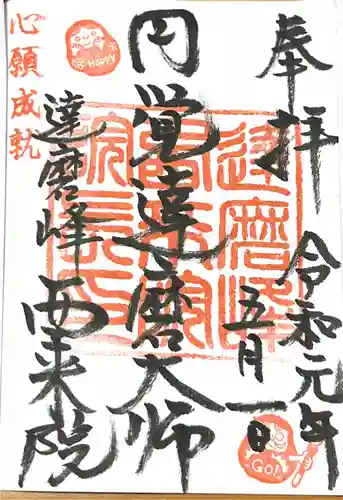 奉拝
令和元年
五月一日
円覚達磨大師
達磨峰
西来院
心願成就
HAPPY
GO!